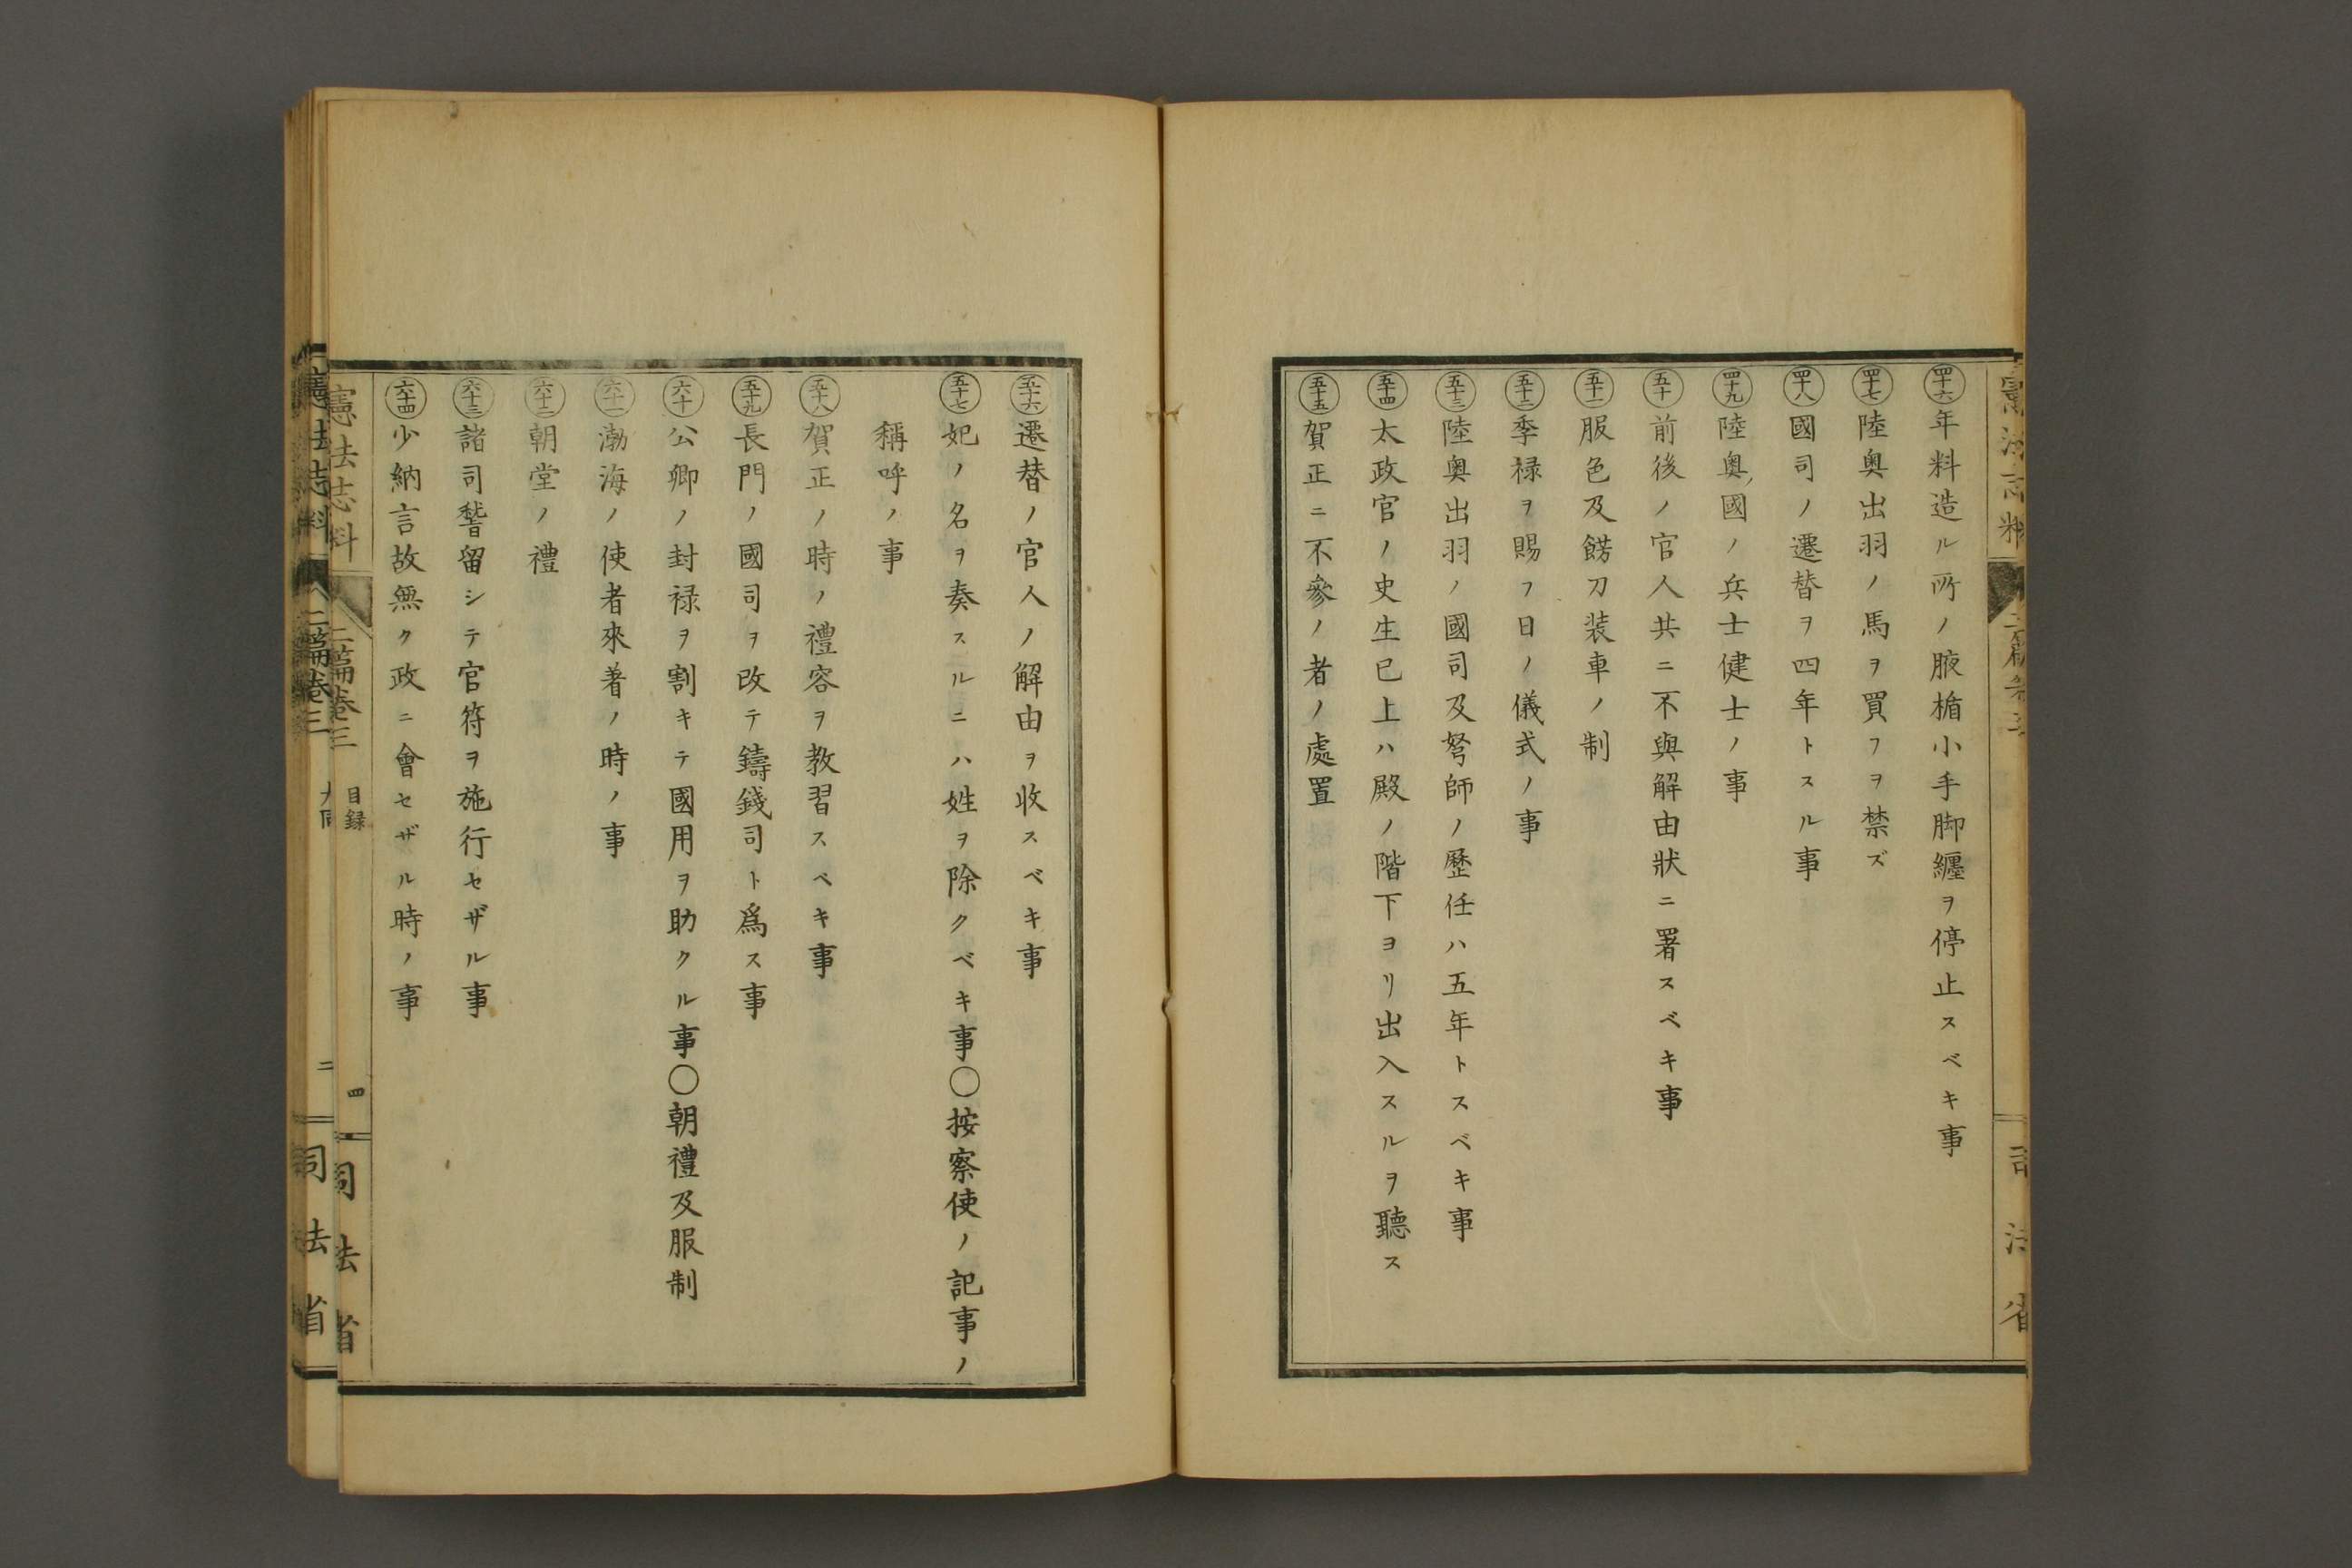 四十六 年料造ル所ノ腋楯小手脚纏ヲ停止スベキ事
四十七 陸奥出羽ノ馬ヲ買フヲ禁ズ
四十八 國司ノ遷替ヲ四年トスル事
四十九 陸奥國ノ兵士健士ノ事
五十 前後ノ官人共ニ不與解由狀ニ署スベキ事
五十一 服色及餝刀装車ノ制
五十二 季禄ヲ賜フ日ノ儀式ノ事
五十三 陸奥出羽ノ國司及弩師ノ歷任ハ五年トスベキ事
五十四 太政官ノ史生已上ハ殿ノ階下ヨリ出入スルヲ聽ス
五十五 賀正ニ不參ノ者ノ處置
五十六 遷替ノ官人ノ解由ヲ收スベキ事
五十七 妃ノ名ヲ奏スルニハ姓ヲ除クベキ事〇按察使ノ記事ノ
稱呼ノ事
五十八 賀正ノ時ノ禮容ヲ教習スベキ事
五十九 長門ノ國司ヲ改テ鑄錢司ト爲ス事
六十 公卿ノ封禄ヲ割キテ國用ヲ助クル事〇朝禮及服制
六十一 渤海ノ使者來着ノ時ノ事
六十二 朝堂ノ禮
六十三 諸司稽留シテ官符ヲ施行セザル事
六十四 少納言故無ク政ニ會セザル時ノ事
憲法志料 二篇卷三 目録 四 司法省
憲法志料 二篇卷三 二 司法省